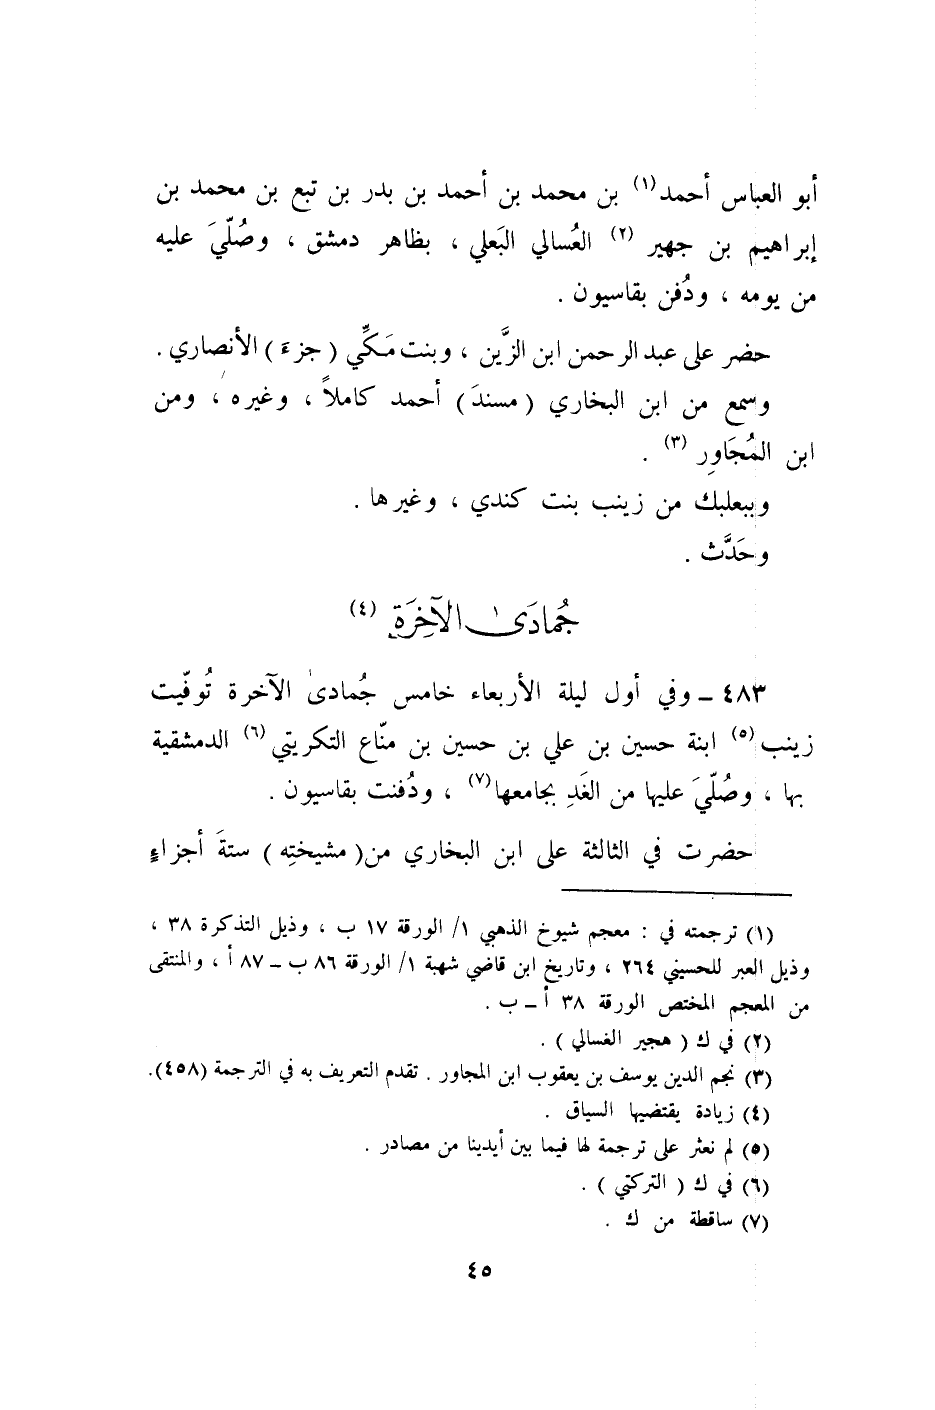 أبو العباس أحمد(١) بن محمد بن أحمد بن بدر بن تبع بن محمد بن
إبراهيم بن جهير (٢) العُسالي البَعلي ، بظاهر دمشق ، وصُلّيَ عليه
من يومه ، ودُفن بقاسيون .
حضر على عبد الرحمن ابن الزَّين ، وبنت مَكِّي ( جزءَ ) الأنصاري .
وسمع من ابن البخاري ( مسندَ ) أحمد كاملاً ، وغيره ، ومن
ابن المُجَاوِر (٣) .
وببعلبك من زينب بنت كندي ، وغيرها .
وحَدَّث .
جُمادَىٰ الآخِرَةِ (٤)
٤٨٣ ـ وفي أول ليلة الأربعاء خامس جُمادىٰ الآخرة تُوفّيت
زينب(٥) ابنة حسين بن علي بن حسين بن منّاع التكريتي(٦) الدمشقية
بها ، وصُلّيَ عليها من الغَدِ بجامعها(٧) ، ودُفنت بقاسيون .
حضرت في الثالثة على ابن البخاري من( مشيختِه ) ستةَ أجزاءٍ
(١) ترجمته في : معجم شيوخ الذهبي ١/ الورقة ١٧ ب ، وذيل التذكرة ٣٨ ،
وذيل العبر للحسيني ٢٦٤ ، وتاريخ ابن قاضي شهبة ١/ الورقة ٨٦ ب ـ ٨٧ أ ، والمنتقى
من المعجم المختص الورقة ٣٨ أ ـ ب .
(٢) في ك ( هجير الغسالي ) .
(٣) نجم الدين يوسف بن يعقوب ابن المجاور . تقدم التعريف به في الترجمة (٤٥٨).
(٤) زيادة يقتضيها السياق .
(٥) لم نعثر على ترجمة لها فيما بين أيدينا من مصادر .
(٦) في ك ( التركتي ) .
(٧) ساقطة من ك .
٤٥